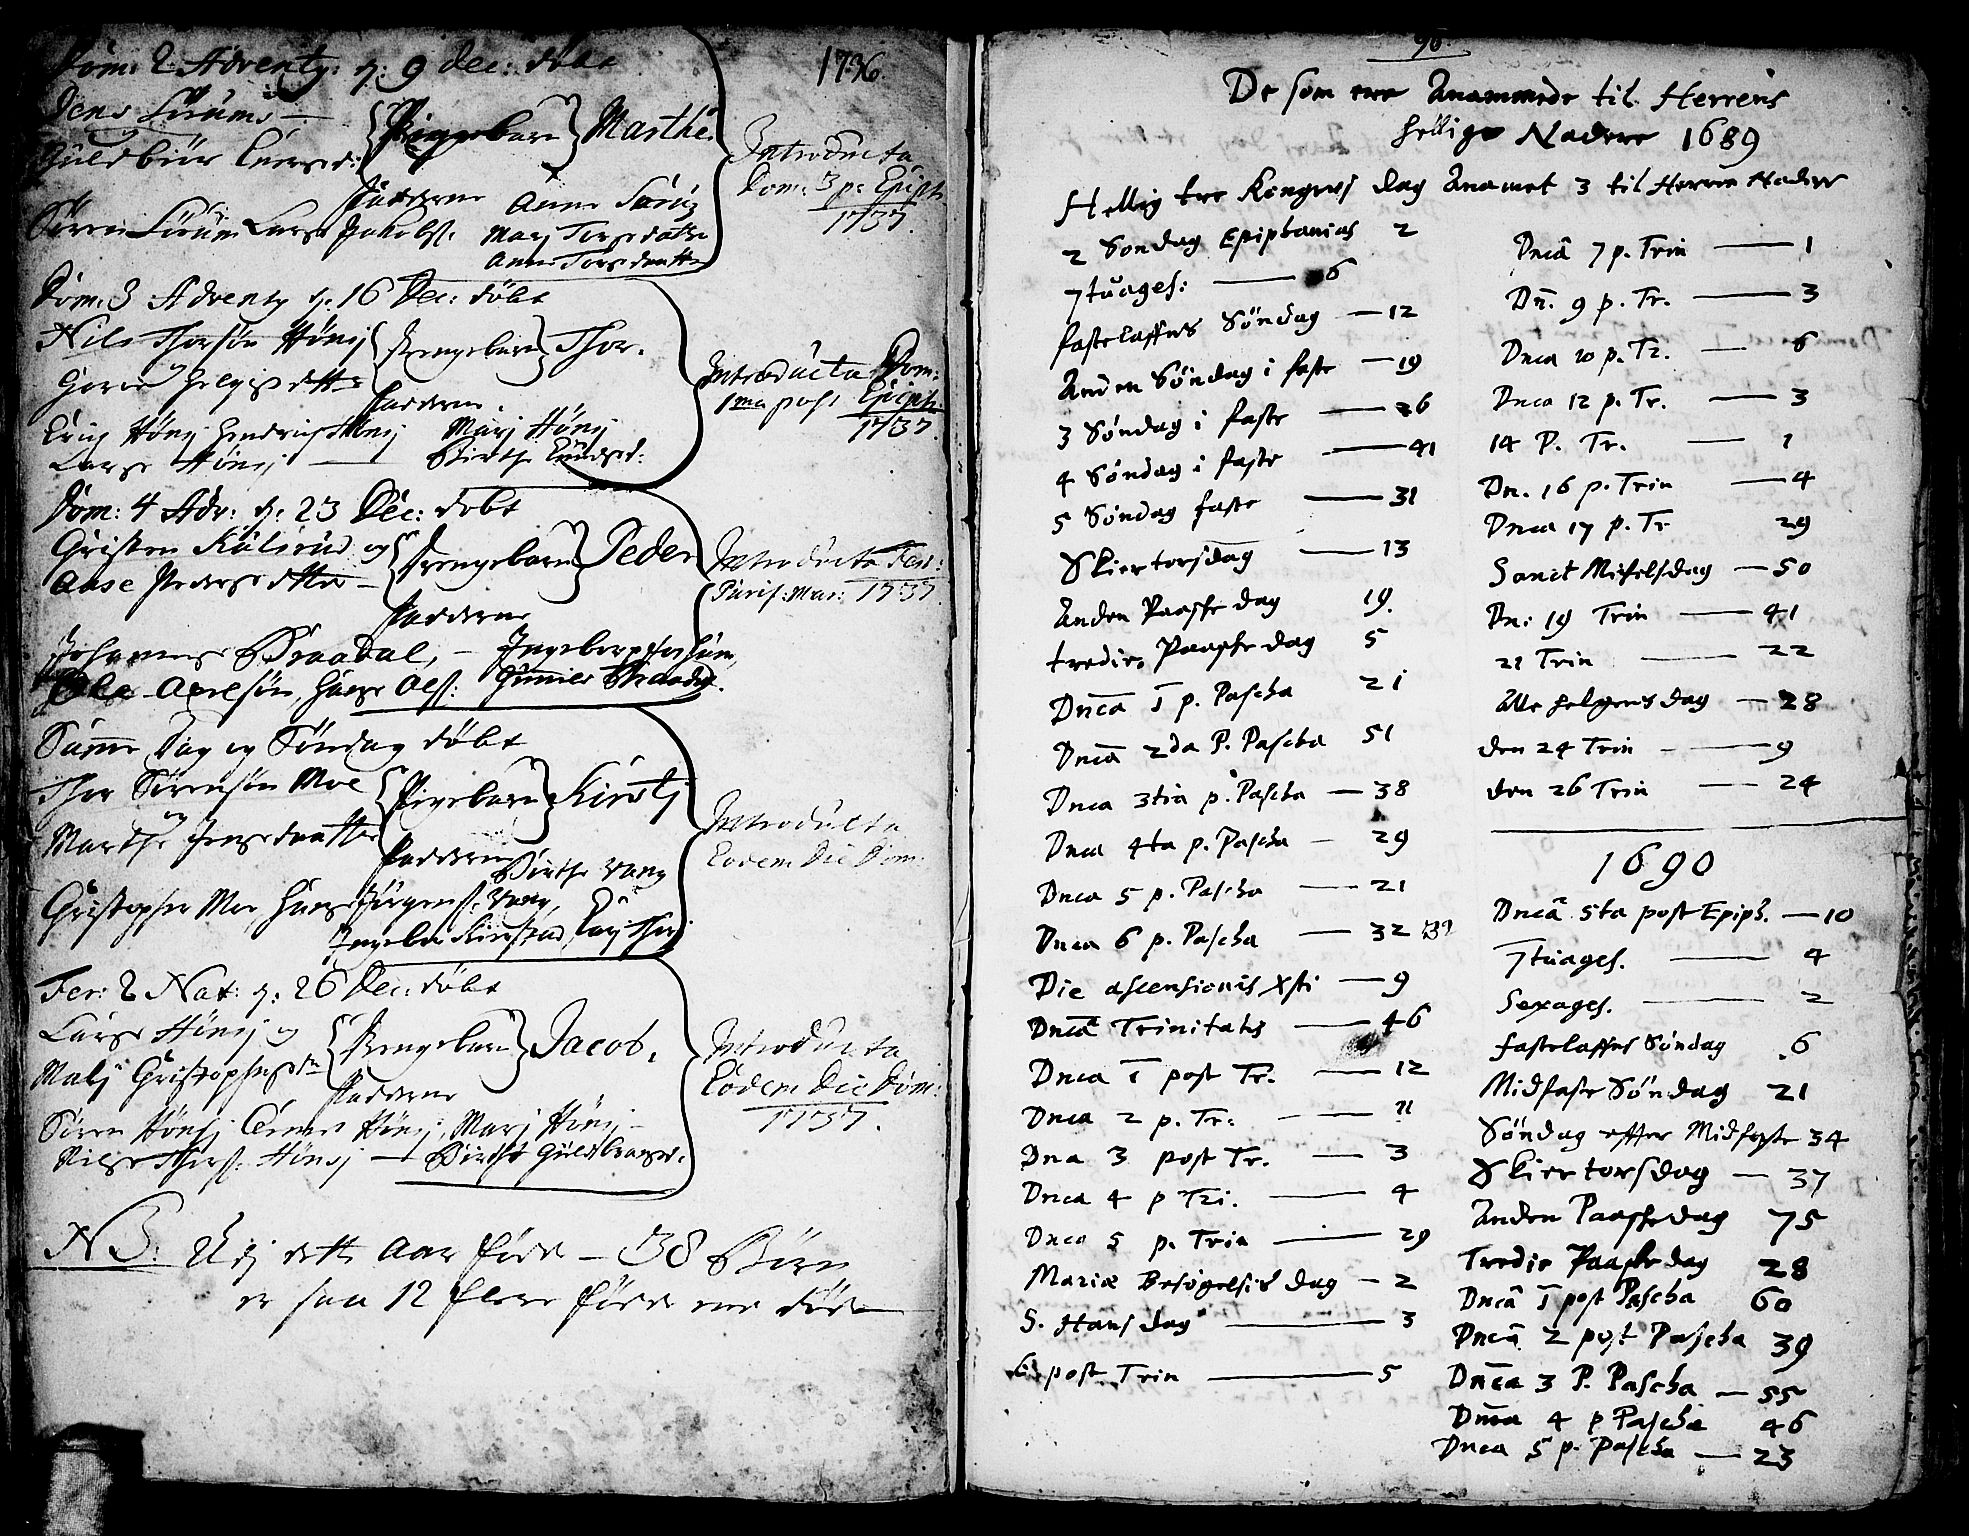 1736.
Dom: 2 Advent: d: 9 Dec: döbt
Jens Sörum
Guldbiör Larsd:
Pigebarn Marthe.
Fadderne
Sören Sörum Lars Jakobs: Anne
Marj Torsdatter
Anne Torsdaatter
Introducta
Dom: 3 p: Epiph
1737.
Dom: 3 Advent d: 16 Dec: döbt
Nils Thorsön Hönsj
Drengebarn Thor.
Fadderne.
Erich Hönsj Hendrich Hönsj Marj Hönsj
Lars Hönsj — Birthe
Introducta Dom:
1ma post Epiph:
1737.
Dom: 4 Adv: d: 23 Dec: döbt
Christen Kulsrud og
Aase Pedersdatter
Drengebarn Peder
Fadderne
Johannes Braadal, — Ingebor
Ole Axelsön, Hans Ols: Gunnild
Introducta Fest:
Purif: Mar: 1737.
Samme Dag og Söndag döbt
Thor Sörensön Moe
og
Marthe Jensdaatter
Pigebarn Kirstj
Fadderne
Birthe Vang
Christopher Moe, Hans Jörgens: Vang,
Introducta
Eodem Die Dom:
Fer: 2 Nat: d: 26 Dec: döbt
Lars Hönsj og
Malj Christophersd:
Drengebarn Jacob.
Fadderne
Sören Hönsj Hönsj, Marj Hönsj
Nils Thors: Hönsj — Birthe Guldbrandsd.
Introducta
Eodem Die Dom:
1737.
NB: Udj dette Aar föde — 38 Börn
er saa 12 flere föde end döde
96.
De som ere Anammede til Herrens
hellige Nadere 1689
Hellig tre Kongers dag Anamet 3 til Herrens Nadere
2 Sondag Epiphanias 2
7tuages: — 6
fastelaffns Söndag — 12
Anden Söndag i faste — 19
3 Söndag i faste — 26
4 Söndag i faste — 41
5 Söndag faste — 31
Skiertorsdag — 13
Anden Paaske dag 19.
tredie Paaske dag 5
Dnca 1 p. Pascha 21
Dnca 2da P. Pascha 51
Dnca 3tia p. Pascha — 38
Dnca 4ta p. Pascha — 29
Dnca 5 p. Pascha — 21
Dnca 6 p. Pascha — 32 32
Die ascensionis Xsti — 9
Dnca Trinitatis — 46
Dnca 1 post Tr. — 12
Dnca 2 p. Tr: — 11
Dna 3 post Tr. — 3
Dnca 4 p Tri. — 4
Dnca 5 p. Trin — 29
Mariæ Besøgelsis dag — 2
S. Hans dag — 3
6 post Trin — 5
Dncâ 7 p. Trin — 1
Dn̄. 9 p. Tr. — 3
Dnca 10 p. Tr. — 6
Dnca 12 p. Tr. — 3
14 P. Tr. — 1
Dn. 16 p. Trin — 4
Dnca 17 p. Tr 29
Sanct Michelsdag — 50
Dn: 19 Trin — 41
21 Trin — 22
Alle helgens dag — 28
den 24 Trin — 9
den 26 Trin — 24
1690
Dncâ 5ta post Epiph. — 10
7tuages. — 4
Sexages. — 2
fastelaffns Söndag 6
Midfaste Söndag 21
Söndag effter Midfaste 34
Skiertorsdag — 37
Anden Paaskedag 75
Tredie Paaske dag 28
Dncâ 1 post Pascha 60
Dncâ 2 post Pascha 39
Dnca 3 P. Pascha — 55
Dnca 4 p Pascha 46
Dnca 5 p. Pascha — 23